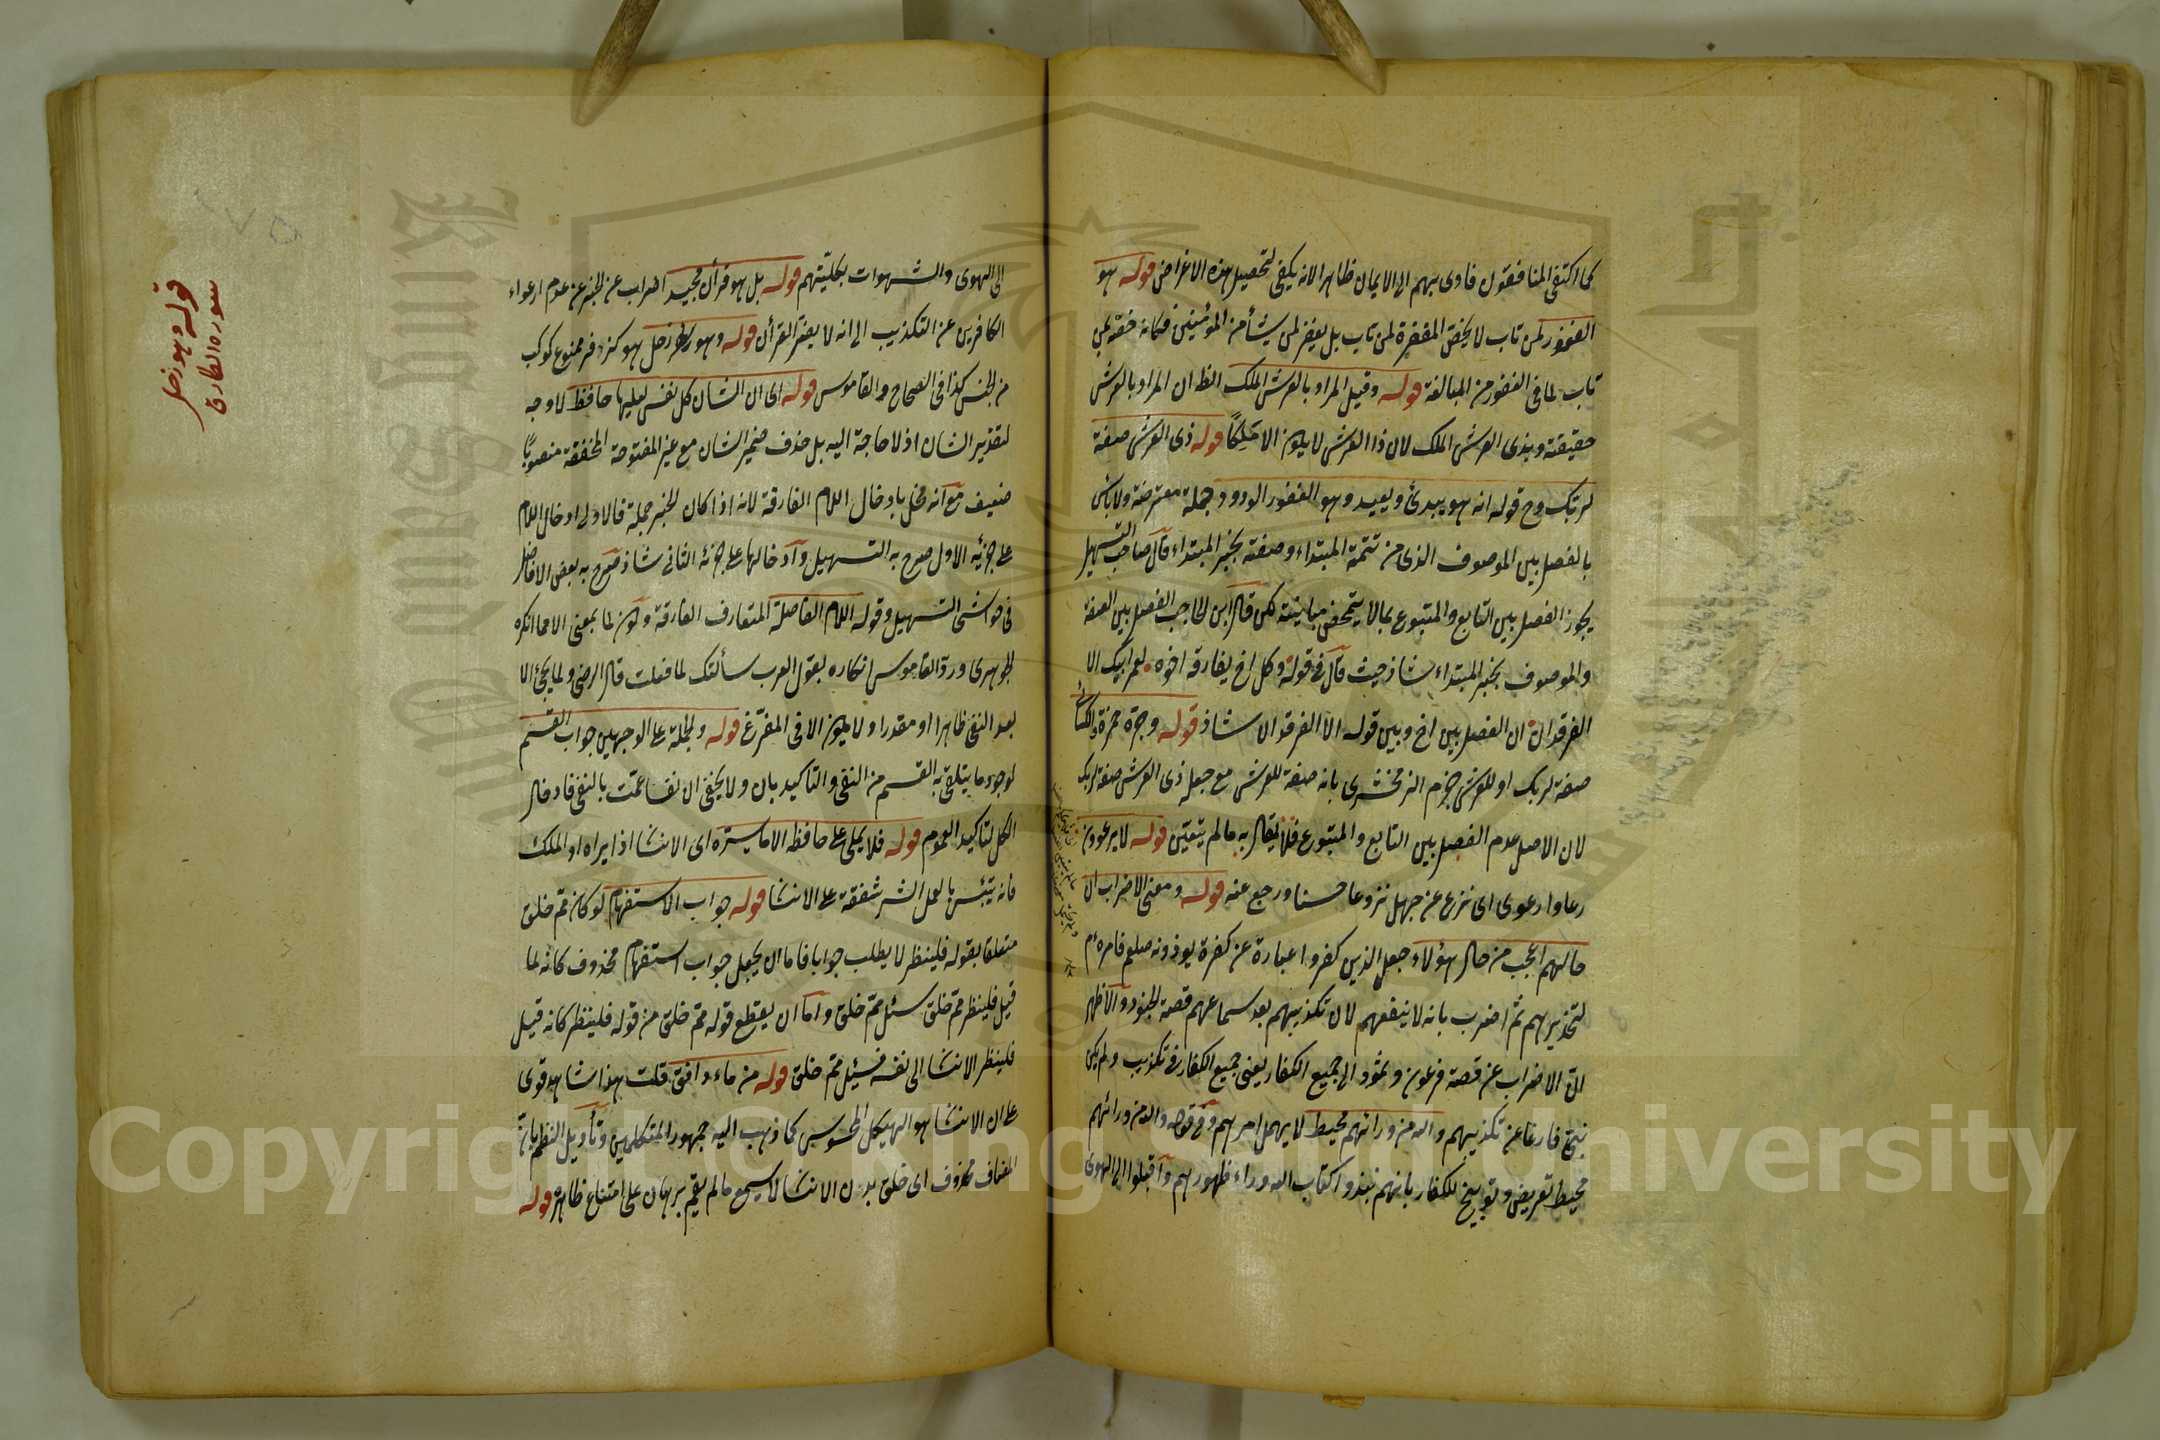 كما اكتفى المنافقون فاوى بهم الى الايمان ظاهرا لانه يكفى لتحصيل هذه الاغراض قوله هو
الغفور لمن تاب لا يخص المغفرة لمن تاب بل يغفر لمن يشأ من المؤمنين فكانه خصه لمن
تاب لما فى الغفور من المبالغة قوله وقيل المراد بالعرش الملك الظ ان المراد بالعرش
حقيقته وبذى العرش الملك لان ذا العرش لا يكون الا مَلِكًا قوله ذى العرش صفة
لربك وح قوله انه هو يبدئ ويعيد وهو الغفور الودود جملة معترضة ولا بأس
بالفصل بين الموصوف الذى من تتمة المبتداء وصفته بخبر المبتداء قال صاحب التسهيل
يجوز الفصل بين التابع والمتبوع بما لا يتمحض مباينته لكن قال ابن الحاجب الفصل بين الصفة
والموصوف بخبر المبتداء شاذ حيث قال فى قوله وكل اخ يفارقه اخوه لعمر ابيك الا
الفرقدان ان الفصل بين اخ وبين قوله الا الفرقدان شاذ قوله وجره حمزة والكسائى
صفة لربك او للعرش جزم الزمخشرى بانه صفة للعرش مع جعل ذى العرش صفة لربك
لان الاصل عدم الفصل بين التابع والمتبوع فلا يقال به ما لم يتعين قوله لا يرعوون
رعا وارعوى اى نزع عن جهل نزوعا حسنا ورجع عنه قوله ومعنى الاضراب ان
حالهم اعجب من حال هؤلاء جعل الذين كفروا عبارة عن كفرة يوذونه صلعم فامره م
لتحذيرهم ثم اضرب بانه لا ينفعهم لان تكذيبهم بعد سماعهم قصة الجنود والاظهر
ان الاضراب عن قصة فرعون وثمود الى جميع الكفار يعنى جميع الكفار فى تكذيب ولم يكن
نبى فارغا عن تكذيبهم والله من ورائهم محيط لا يهمل امرهم وفى قوله والله من ورائهم
محيط تعريض وتوبيخ للكفار بانهم نبذوا كتاب الله وراء ظهورهم واقبلوا الى الهوى
الى الهوى والشهوات بكليّتهم قوله بل هو قرآن مجيد اضراب عن الخبر عن عدم ارعواء
الكافرين عن التكذيب الى انه لا يضر القرآن قوله وهو زحل هو كزفر ممنوع كوكب
من الخنس كذا فى الصحاح والقاموس قوله اى ان الشان كل نفس لعليها حافظ لا وجه
لتقدير الشان اذ لا حاجة اليه بل حذف ضمير الشان مع غير المفتوحة المخففة منصوبًا
ضعيف مع انه مخل بادخال اللام الفارقة لانه اذا كان الخبر جملة فالاولى ادخال اللام
على جزئه الاول صرح به التسهيل وادخالها على جزئه الثانى شاذ صرح به بعض الافاضل
فى حواشى التسهيل وقوله اللام الفاصلة المتعارف الفارقة وكون لما بمعنى الا مما انكره
الجوهرى ورد القاموس انكاره بقول العرب سألتك لما فعلت قال الرضى ولما يجئ الا
بعد النفى ظاهرا او مقدرا ولا يكون الا فى المفرّغ قوله والجملة على الوجهين جواب القسم
لوجود ما يتلقى به القسم من النفى والتاكيد بان ولا يخفى ان نفسا عمت بالنفى فادخال
الكل لتاكيد العموم قوله فلا يملى على حافظه الا ما يسره اى الانسان اذا يراه او الملك
فانه يبئس بالعمل الشر شفقة على الانسان قوله جواب الاستفهام لو كان مم خلق
متعلقا بقوله فلينظر لا يطلب جوابا فاما ان يجعل جواب استفهام محذوف كانه لما
قيل فلينظر مم خلق سئل مم خلق واما ان يقطع قوله مم خلق من قوله فلينظر كانه قيل
فلينظر الانسان الى نفسه فسئل مم خلق قوله من ماء دافق قلت هذا شاهد قوى
على ان الانسان هو الهيكل المحسوس كما ذهب اليه جمهور المتكلمين وتأويل النظم بان
المضاف محذوف اى خلق بدن الانسان لا يسمع ما لم يقم برهان على امتناع ظاهره قوله
قوله وهو زحل
سورة الطارق
٢٧٥
Copyright © King Saud University